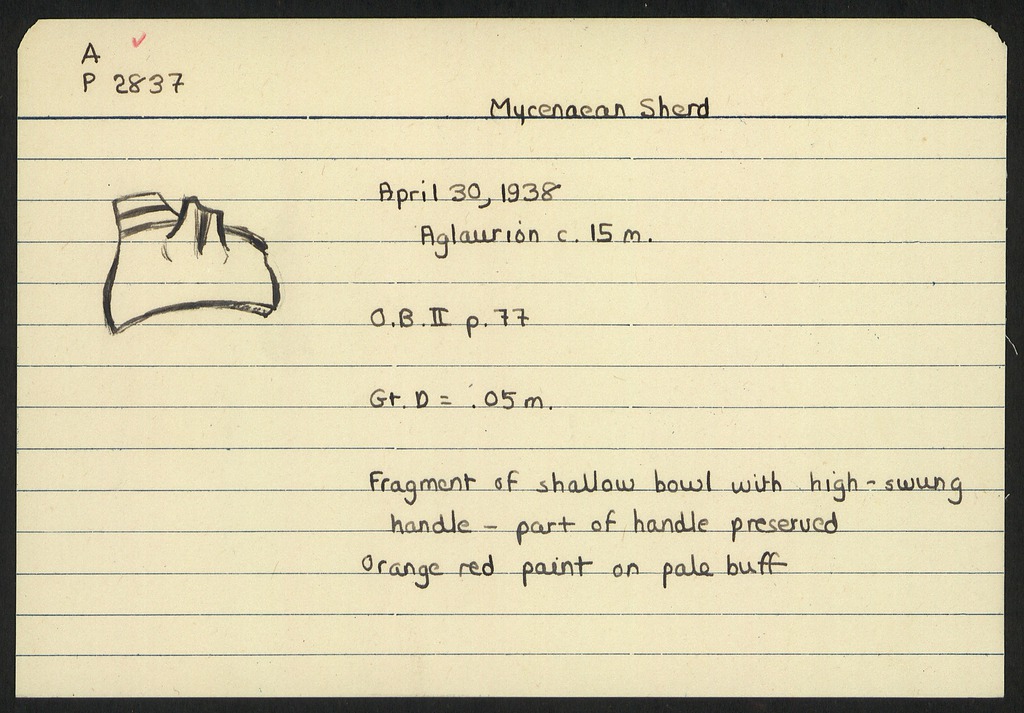 A
P 2837
Mycenaean Sherd
April 30, 1938
Aglaurion c. 15 m.
O.B. II p. 77
Gr. D = .05 m.
Fragment of shallow bowl with high-swung
handle - part of handle preserved
Orange red paint on pale buff